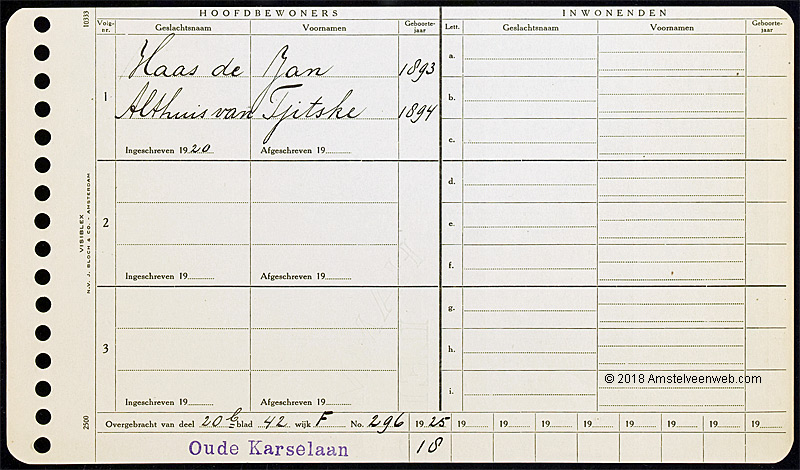 HOOFDBEWONERS
INWONENDEN
10333
Volg-nr.
Geslachtsnaam
Voornamen
Geboorte-jaar
Lett.
Geslachtsnaam
Voornamen
Geboorte-jaar
1
Haas de Jan 1893
Althuis van Tjitske 1894
Ingeschreven 1920
Afgeschreven 19
a.
b.
c.
2
Ingeschreven 19
Afgeschreven 19
d.
e.
f.
3
Ingeschreven 19
Afgeschreven 19
g.
h.
i.
VISIBLEX
N.V. J. BLOCH & CO. - AMSTERDAM
2500
© 2018 Amstelveenweb.com
Overgebracht van deel 20 blad 42 wijk F No. 296 1925 19 19 19 19 19 19 19 19
Oude Karselaan 18